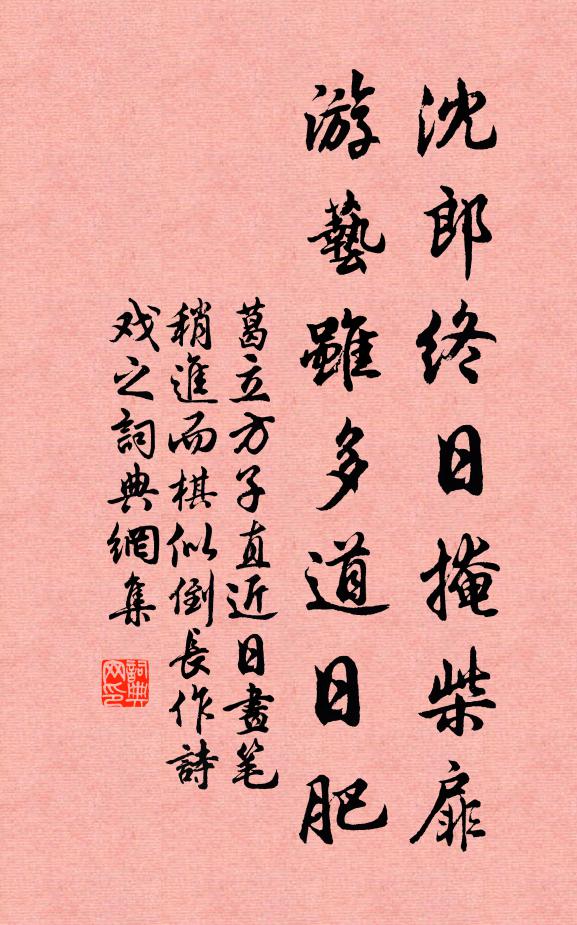 沈郎终日掩柴扉
游藝雖多道日肥
葛立方子直近日畫笔
稍進而棋似倒長作詩
戏之詞典網集
詞典网印